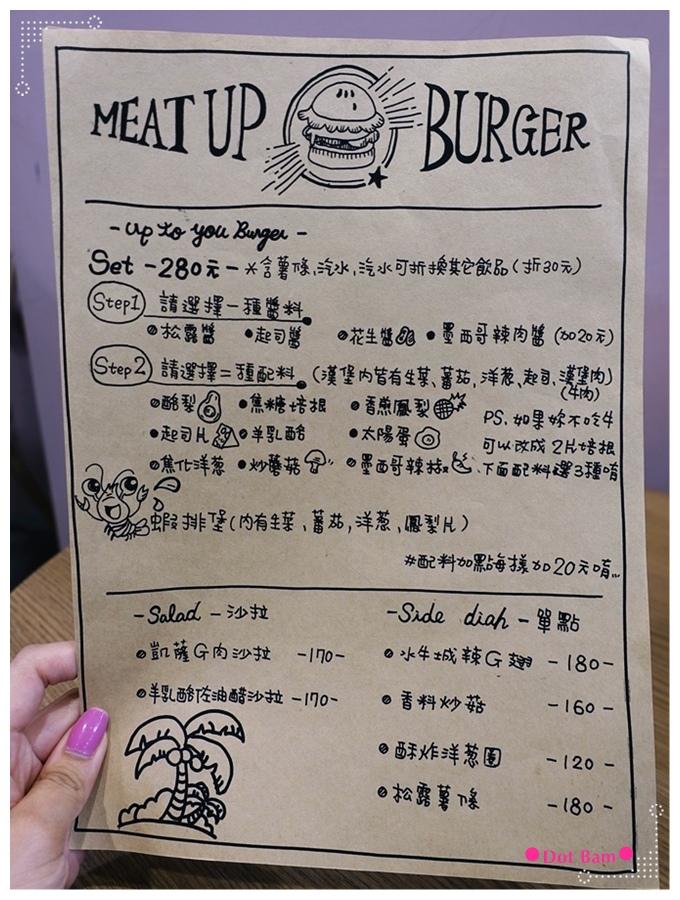 MEAT UP BURGER
-Up to you Burger-
Set -280元- *含薯條,汽水,汽水可折換其它飲品(折30元)
Step1 請選擇一種醬料
松露醬 起司醬 花生醬 墨西哥辣肉醬 (加20元)
Step2 請選擇二種配料 (漢堡內皆有生菜、蕃茄,洋葱、起司、漢堡肉)
(牛肉)
酪梨 焦糖培根 香煎鳳梨
PS. 如果妳不吃牛
起司片 羊乳酪 太陽蛋
可以改成 2片培根
焦化洋葱 炒蘑菇 墨西哥辣椒
下面配料選3種唷
蝦排堡(內有生菜、蕃茄,洋葱、鳳梨片)
#配料加點每樣加20元唷...
-Salad-沙拉
凱薩G肉沙拉 -170-
羊乳酪佐油醋沙拉 -170-
-Side diah-單點
水牛城辣G翅 -180-
香料炒菇 -160-
酥炸洋葱圈 -120-
松露薯條 -180-
Dot.Bam